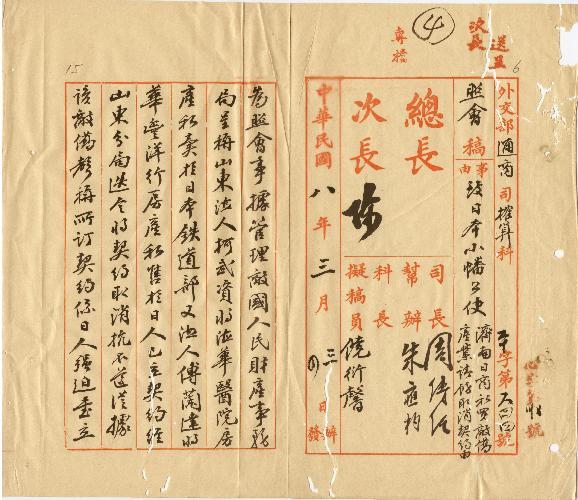 ④
次長
送呈
專擔
6
外交部通商司榷算科
照會
稿
事由
致日本小幡公使
濟南日商私買敵僑
產業請飭取消契約由
字第
號
總長
次長
陳
司長
幫辦
科長
擬稿員
周傳經
朱應杓
饒衍馨
中華民國八年三月
三
日
辦
發
15
為照會事據管理敵國人民財產事務
局呈稱山東德人柯武資將德華醫院房
產私賣於日本鉄道部又德人傅蘭達將
華豐洋行房產私售於日人已立契約經
山東分局迭令將契約取消抗不遵從據
該敵僑聲稱所訂契約係日人強迫畫立